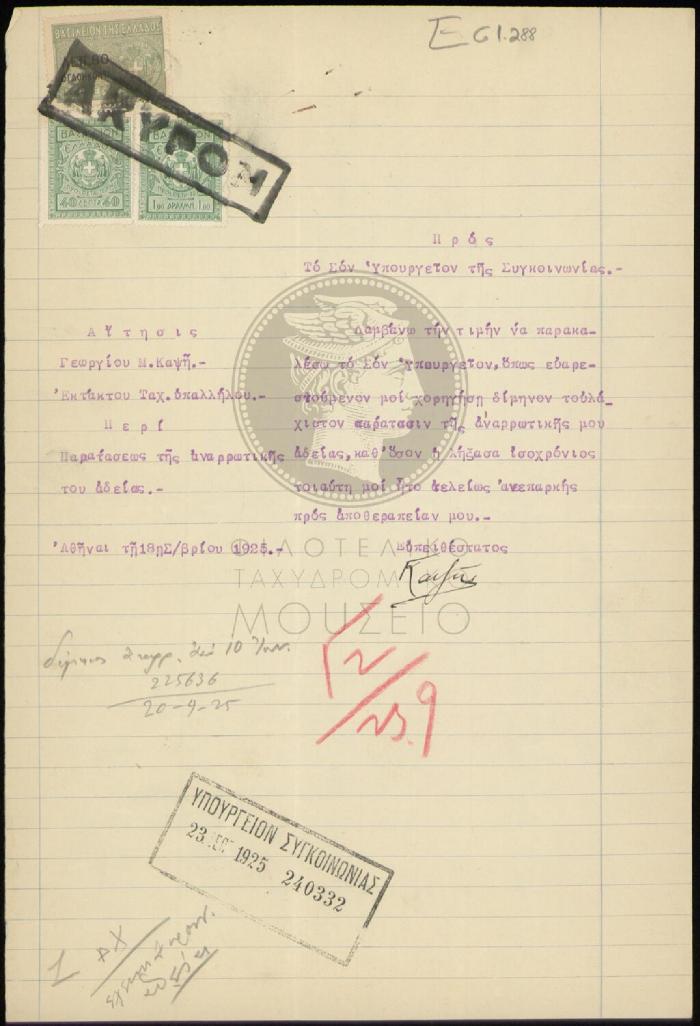 E G1.288
ΒΑΣΙΛΕΙΟΝ ΤΗΣ ΕΛΛΑΔΟΣ
ΑΚΥΡΟΝ
ΒΑΣΙΛΕΙΟΝ
ΕΛΛΑΔΟΣ
40 ΛΕΠΤΑ 40
ΒΑΣΙΛΕΙΟΝ
1.00 ΔΡΑΧΜΗ 1.00
Π ρ ό ς
Τό Σόν Ὑπουργεῖον τῆς Συγκοινωνίας.-
Α ἴ τ η σ ι ς
Γεωργίου Μ.Καψῆ.-
Ἐκτάκτου Ταχ.ὑπαλλήλου.-
Π ε ρ ί
Παρατάσεως τῆς ἀναρρωτικῆς
του ἀδείας.-
Ἀθῆναι τῇ 18ῃ Σ/βρίου 1925.-
Λαμβάνω τήν τιμήν νά παρακα-
λέσω τό Σόν Ὑπουργεῖον, ὅπως εὐαρε-
στούμενον μοί χορηγήσῃ δίμηνον τοὐλά-
χιστον παράτασιν τῆς ἀναρρωτικῆς μου
ἀδείας, καθ'ὅσον ἡ λήξασα ἰσοχρόνιος
τοιαύτη μοί ἦτο τελείως ἀνεπαρκής
πρός ἀποθεραπείαν μου.-
Εὐπειθέστατος
Καψῆς
ΦΙΛΟΤΕΛΙΚΟ
ΤΑΧΥΔΡΟΜΙΚΟ
ΜΟΥΣΕΙΟ
225636
20-4-25
23.9
ΥΠΟΥΡΓΕΙΟΝ ΣΥΓΚΟΙΝΩΝΙΑΣ
23 ΣΕΠ 1925 240332